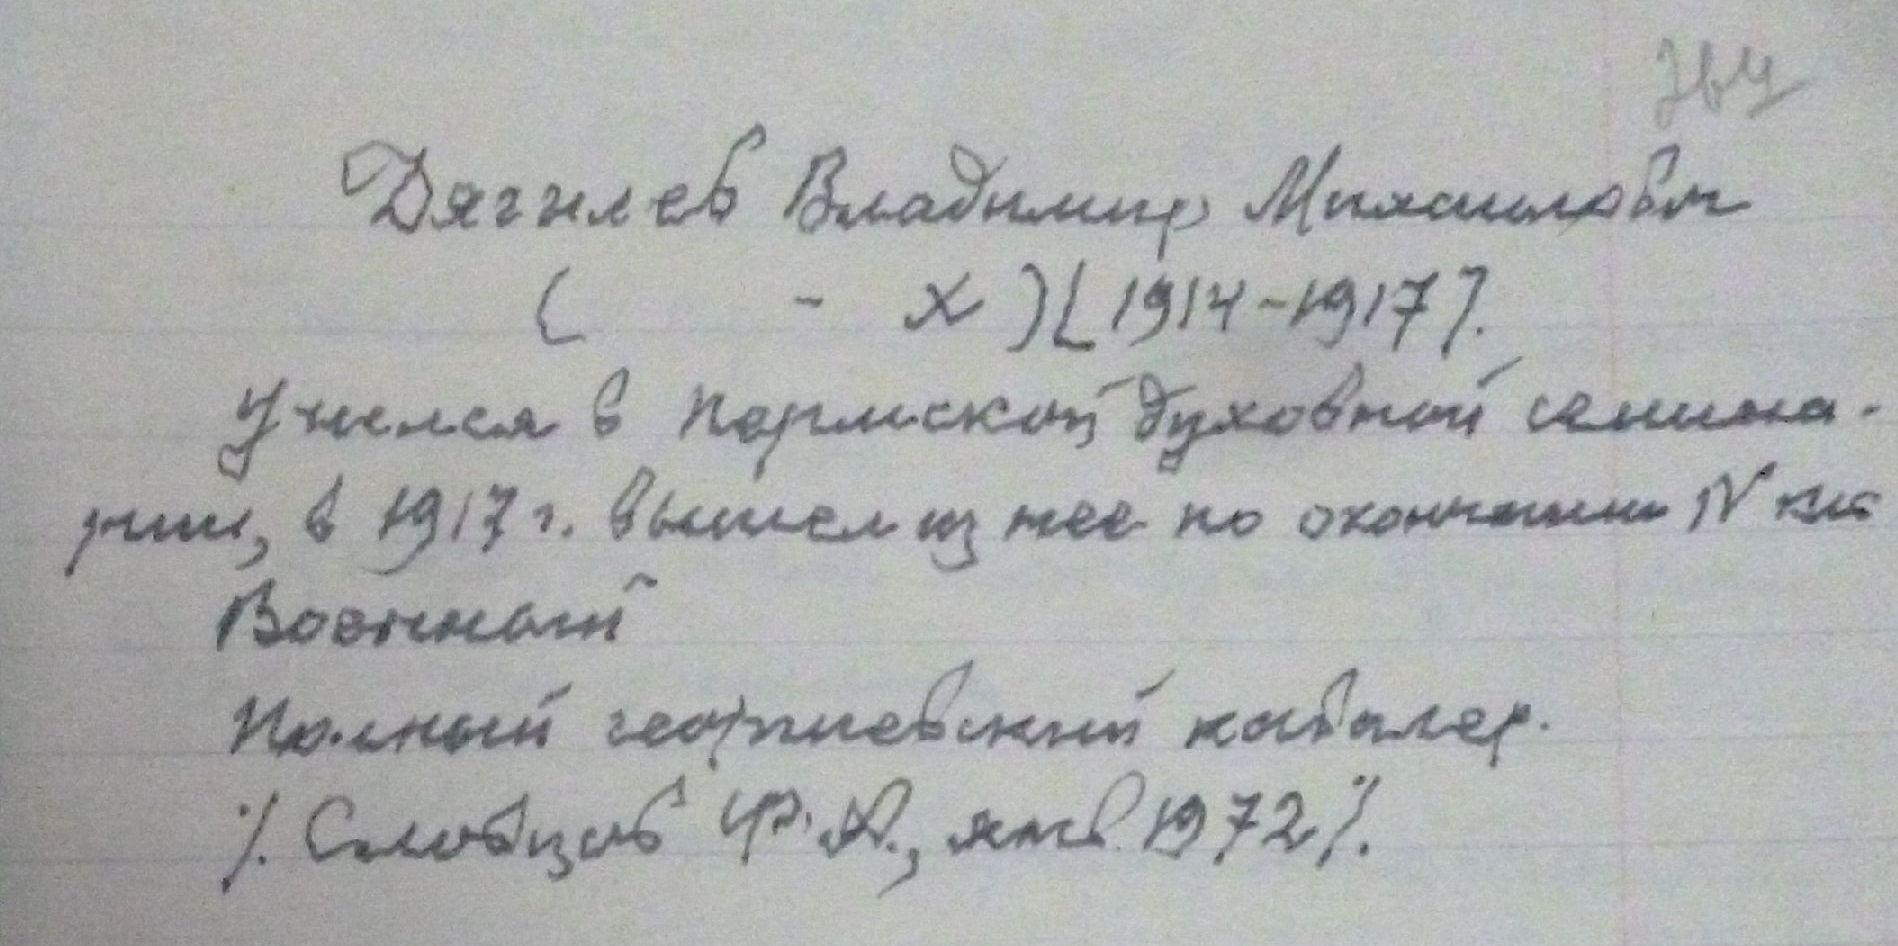 364
Дягилев Владимир Михайлович
( - х ) [1914-1917].
Учился в Пермской духовной семина-
рии, в 1917 г. вышел из нее по окончании IV кл.
Военный
Полный георгиевский кавалер.
%. Слобцов И.А., янв. 1972 %.